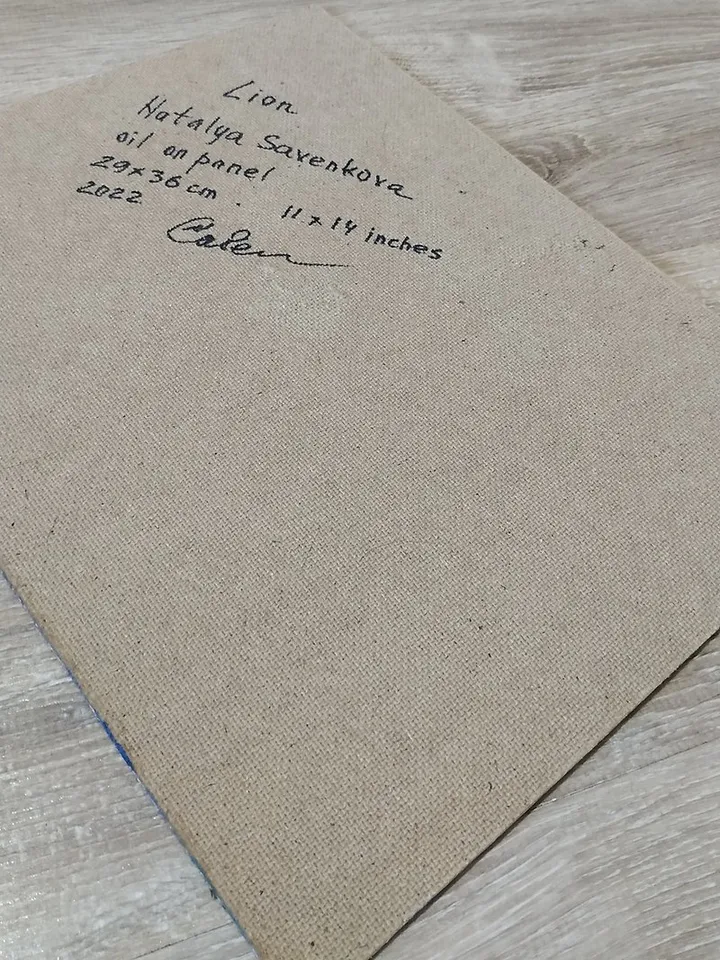 Lion
Natalya Savenkova
oil on panel
29x36 cm. 11 x 14 inches
2022